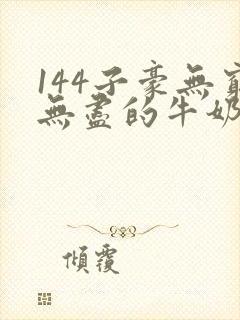 144子豪無窮
無盡的牛奶
傾覆